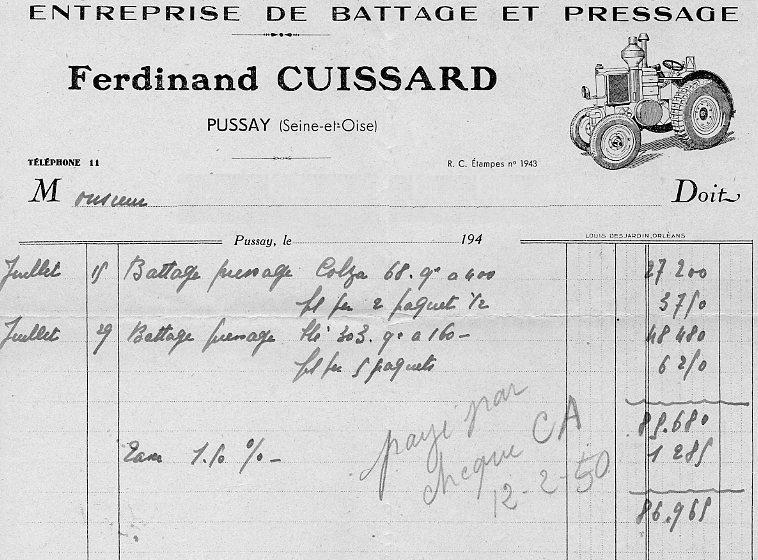 ENTREPRISE DE BATTAGE ET PRESSAGE
Ferdinand CUISSARD
PUSSAY (Seine-et-Oise)
TÉLÉPHONE 11
R. C. Étampes n° 1943
Monsieur Doit
Pussay, le 194
LOUIS DESJARDIN, ORLÉANS
Juillet 15 Battage pressage Colza 68. qx a 400 27 200
fil fer 2 paquet 1/2 3750
Juillet 29 Battage pressage Blé 303. qx a 160- 48 480
fil fer 5 paquets 6 250
85.680
Taxe 1.50 %- 1 285
86.965
payé par
cheque CA
12-2-50